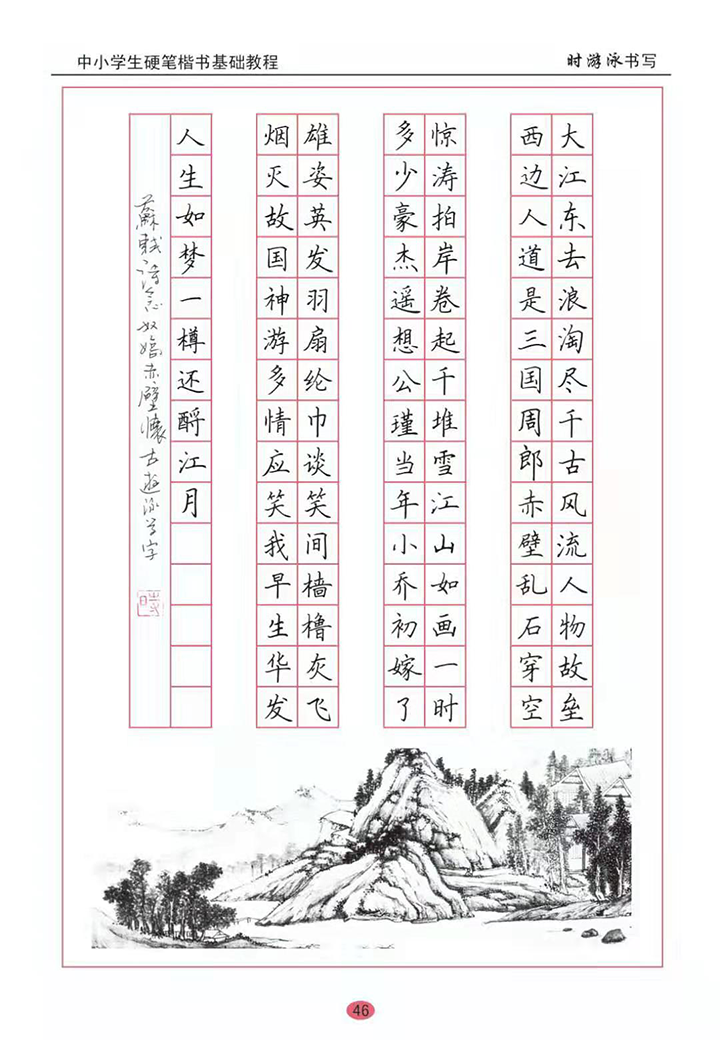 中小学生硬笔楷书基础教程
时游泳书写
大江东去浪淘尽千古风流人物故垒
西边人道是三国周郎赤壁乱石穿空
惊涛拍岸卷起千堆雪江山如画一时
多少豪杰遥想公瑾当年小乔初嫁了
雄姿英发羽扇纶巾谈笑间樯橹灰飞
烟灭故国神游多情应笑我早生华发
人生如梦一樽还酹江月
蘇軾词念奴嬌赤壁懷古游泳写字
46